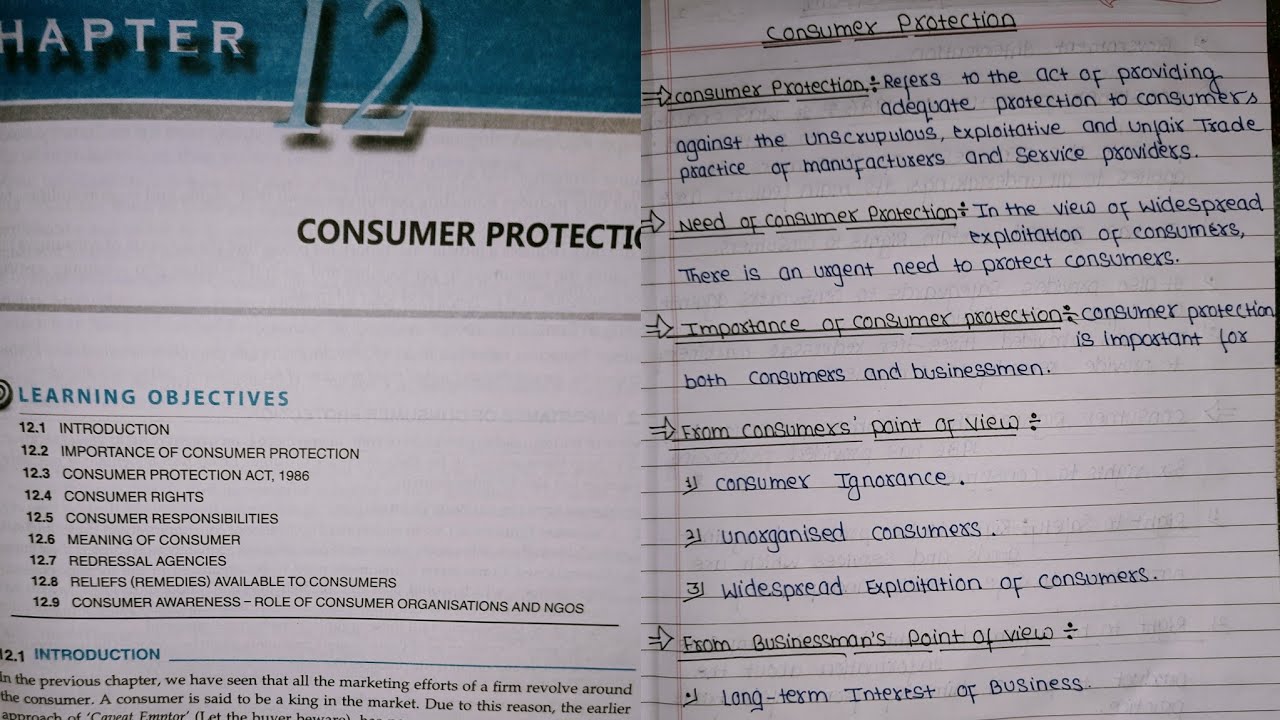 CHAPTER 12
CONSUMER PROTECTIO
LEARNING OBJECTIVES
12.1 INTRODUCTION
12.2 IMPORTANCE OF CONSUMER PROTECTION
12.3 CONSUMER PROTECTION ACT, 1986
12.4 CONSUMER RIGHTS
12.5 CONSUMER RESPONSIBILITIES
12.6 MEANING OF CONSUMER
12.7 REDRESSAL AGENCIES
12.8 RELIEFS (REMEDIES) AVAILABLE TO CONSUMERS
12.9 CONSUMER AWARENESS – ROLE OF CONSUMER ORGANISATIONS AND NGOS
12.1 INTRODUCTION
In the previous chapter, we have seen that all the marketing efforts of a firm revolve around
the consumer. A consumer is said to be a king in the market. Due to this reason, the earlier
approach of 'Caveat Emptor' (Let the buyer beware),
Consumer Protection
⇒ consumer Protection ÷ Refers to the act of providing
adequate protection to consumers
against the unscrupulous, exploitative and unfair Trade
practice of manufacturers and Service providers.
⇒ Need of consumer Protection ÷ In the view of widespread
exploitation of consumers,
There is an urgent need to protect consumers.
⇒ Importance of consumer protection ÷ consumer protection
is important for
both consumers and businessmen.
⇒ From consumers' point of view ÷
1) consumer Ignorance.
2) unorganised consumers.
3) Widespread Exploitation of consumers.
⇒ From Businessman's point of view ÷
1) Long-term Interest of Business.